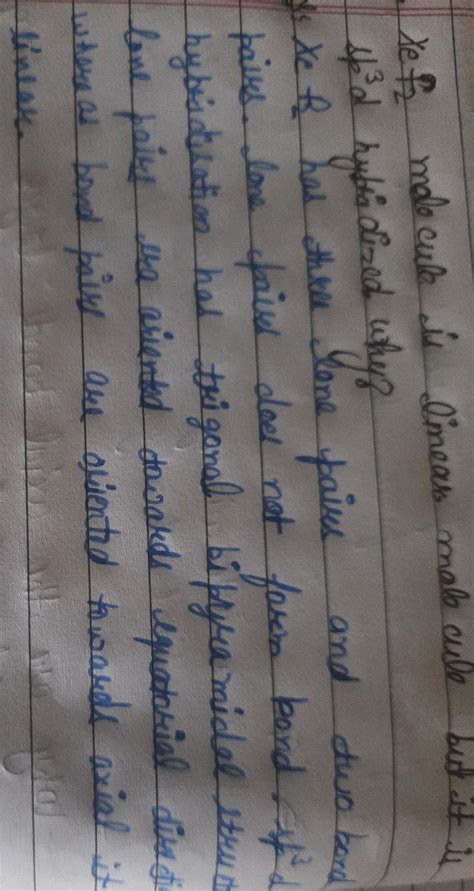 XeF2 molecule is linear molecule but it is
sp3d hybridized why?
XeF2 has three lone pairs and two bond
pairs. lone pairs does not form bond, sp3d
hybridization has trigonal bipyramidal
lone pairs are oriented towards equatorial
whereas bond pairs are oriented towards axial it
linear.